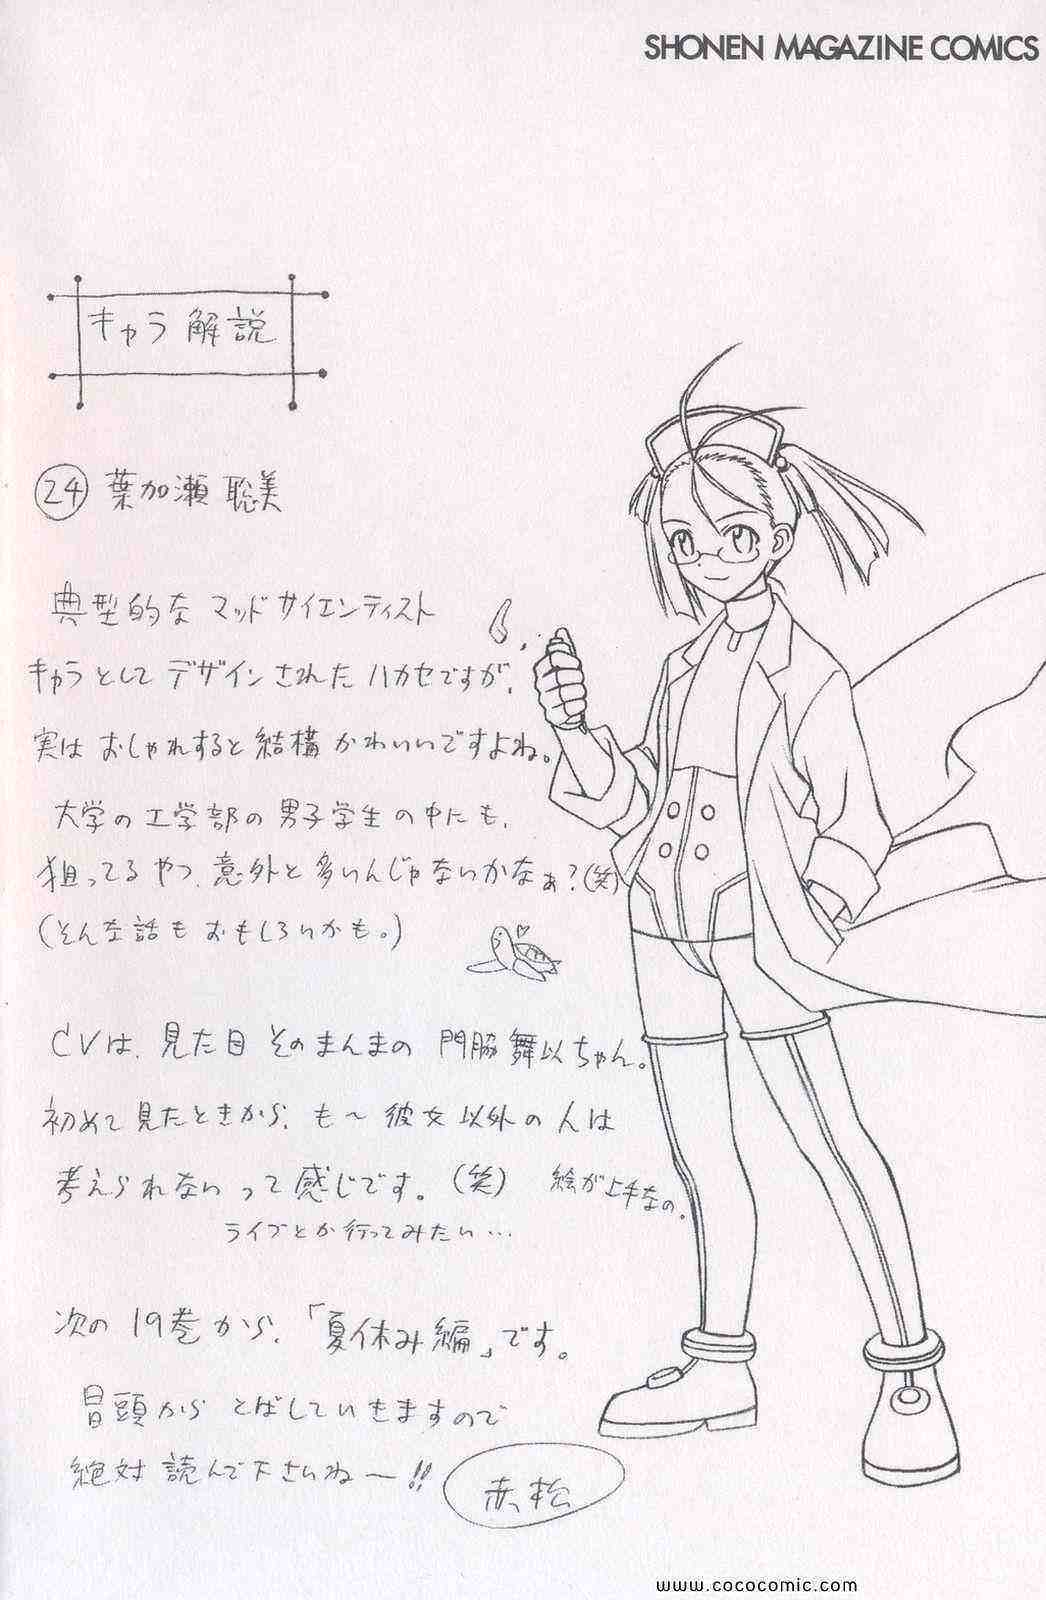 SHONEN MAGAZINE COMICS
キャラ解説
㉔ 葉加瀬 聡美
典型的な マッドサイエンティスト
キャラとして デザインされた ハカセですが、
実は おしゃれすると 結構 かわいいですよね。
大学の工学部の男子学生の中にも、
狙ってるやつ、意外と多いんじゃないかなぁ?(笑)
(そんな話も おもしろいかも。)
CVは、見た目 そのまんまの 門脇 舞以ちゃん。
初めて見たときから、も〜彼女以外の人は
考えられないって感じです。(笑) 絵が上手なの。
ライブとか行ってみたい…
次の 19巻から、「夏休み編」です。
冒頭から とばしていきますので
絶対 読んで下さいねー!!
赤松
www.cococomic.com